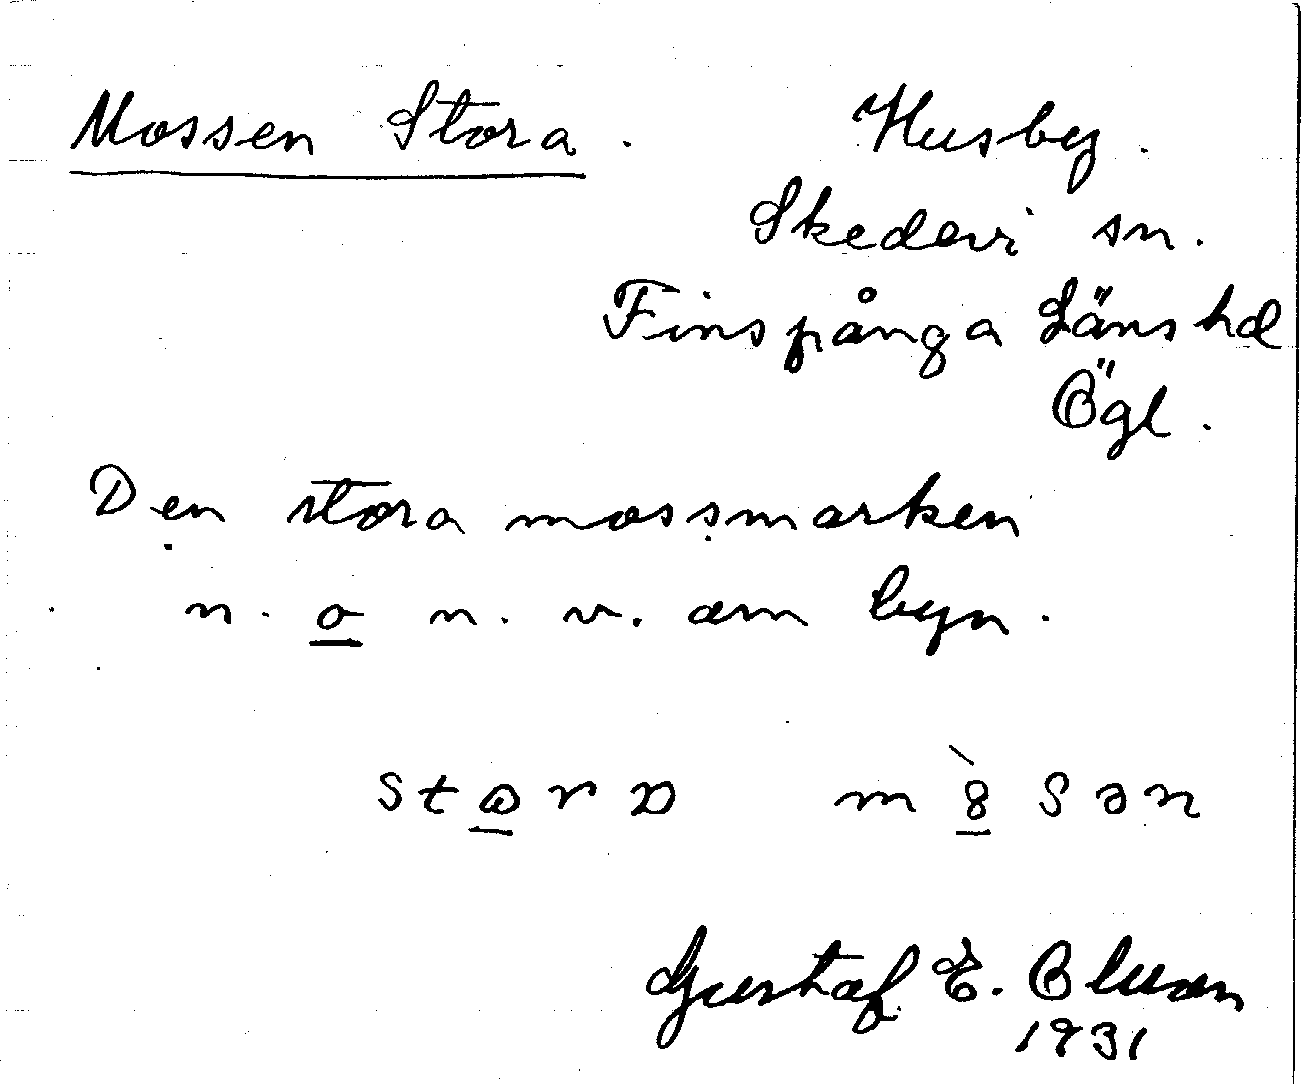 Mossen Stora. Husby.
Skedevi sn.
Finspånga Läns hd
Ögl.
Den stora mossmarken
n. o n. v. om byn.
Gustaf E. Olsson
1931